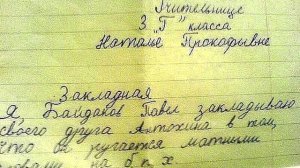 Учительнице
3 "Г" класса
Наталье Прокофьвне
Закладная
Я, Байдаков Павел закладываю
своего друга Алтохина в том,
что он ругается матными
словами на б п х